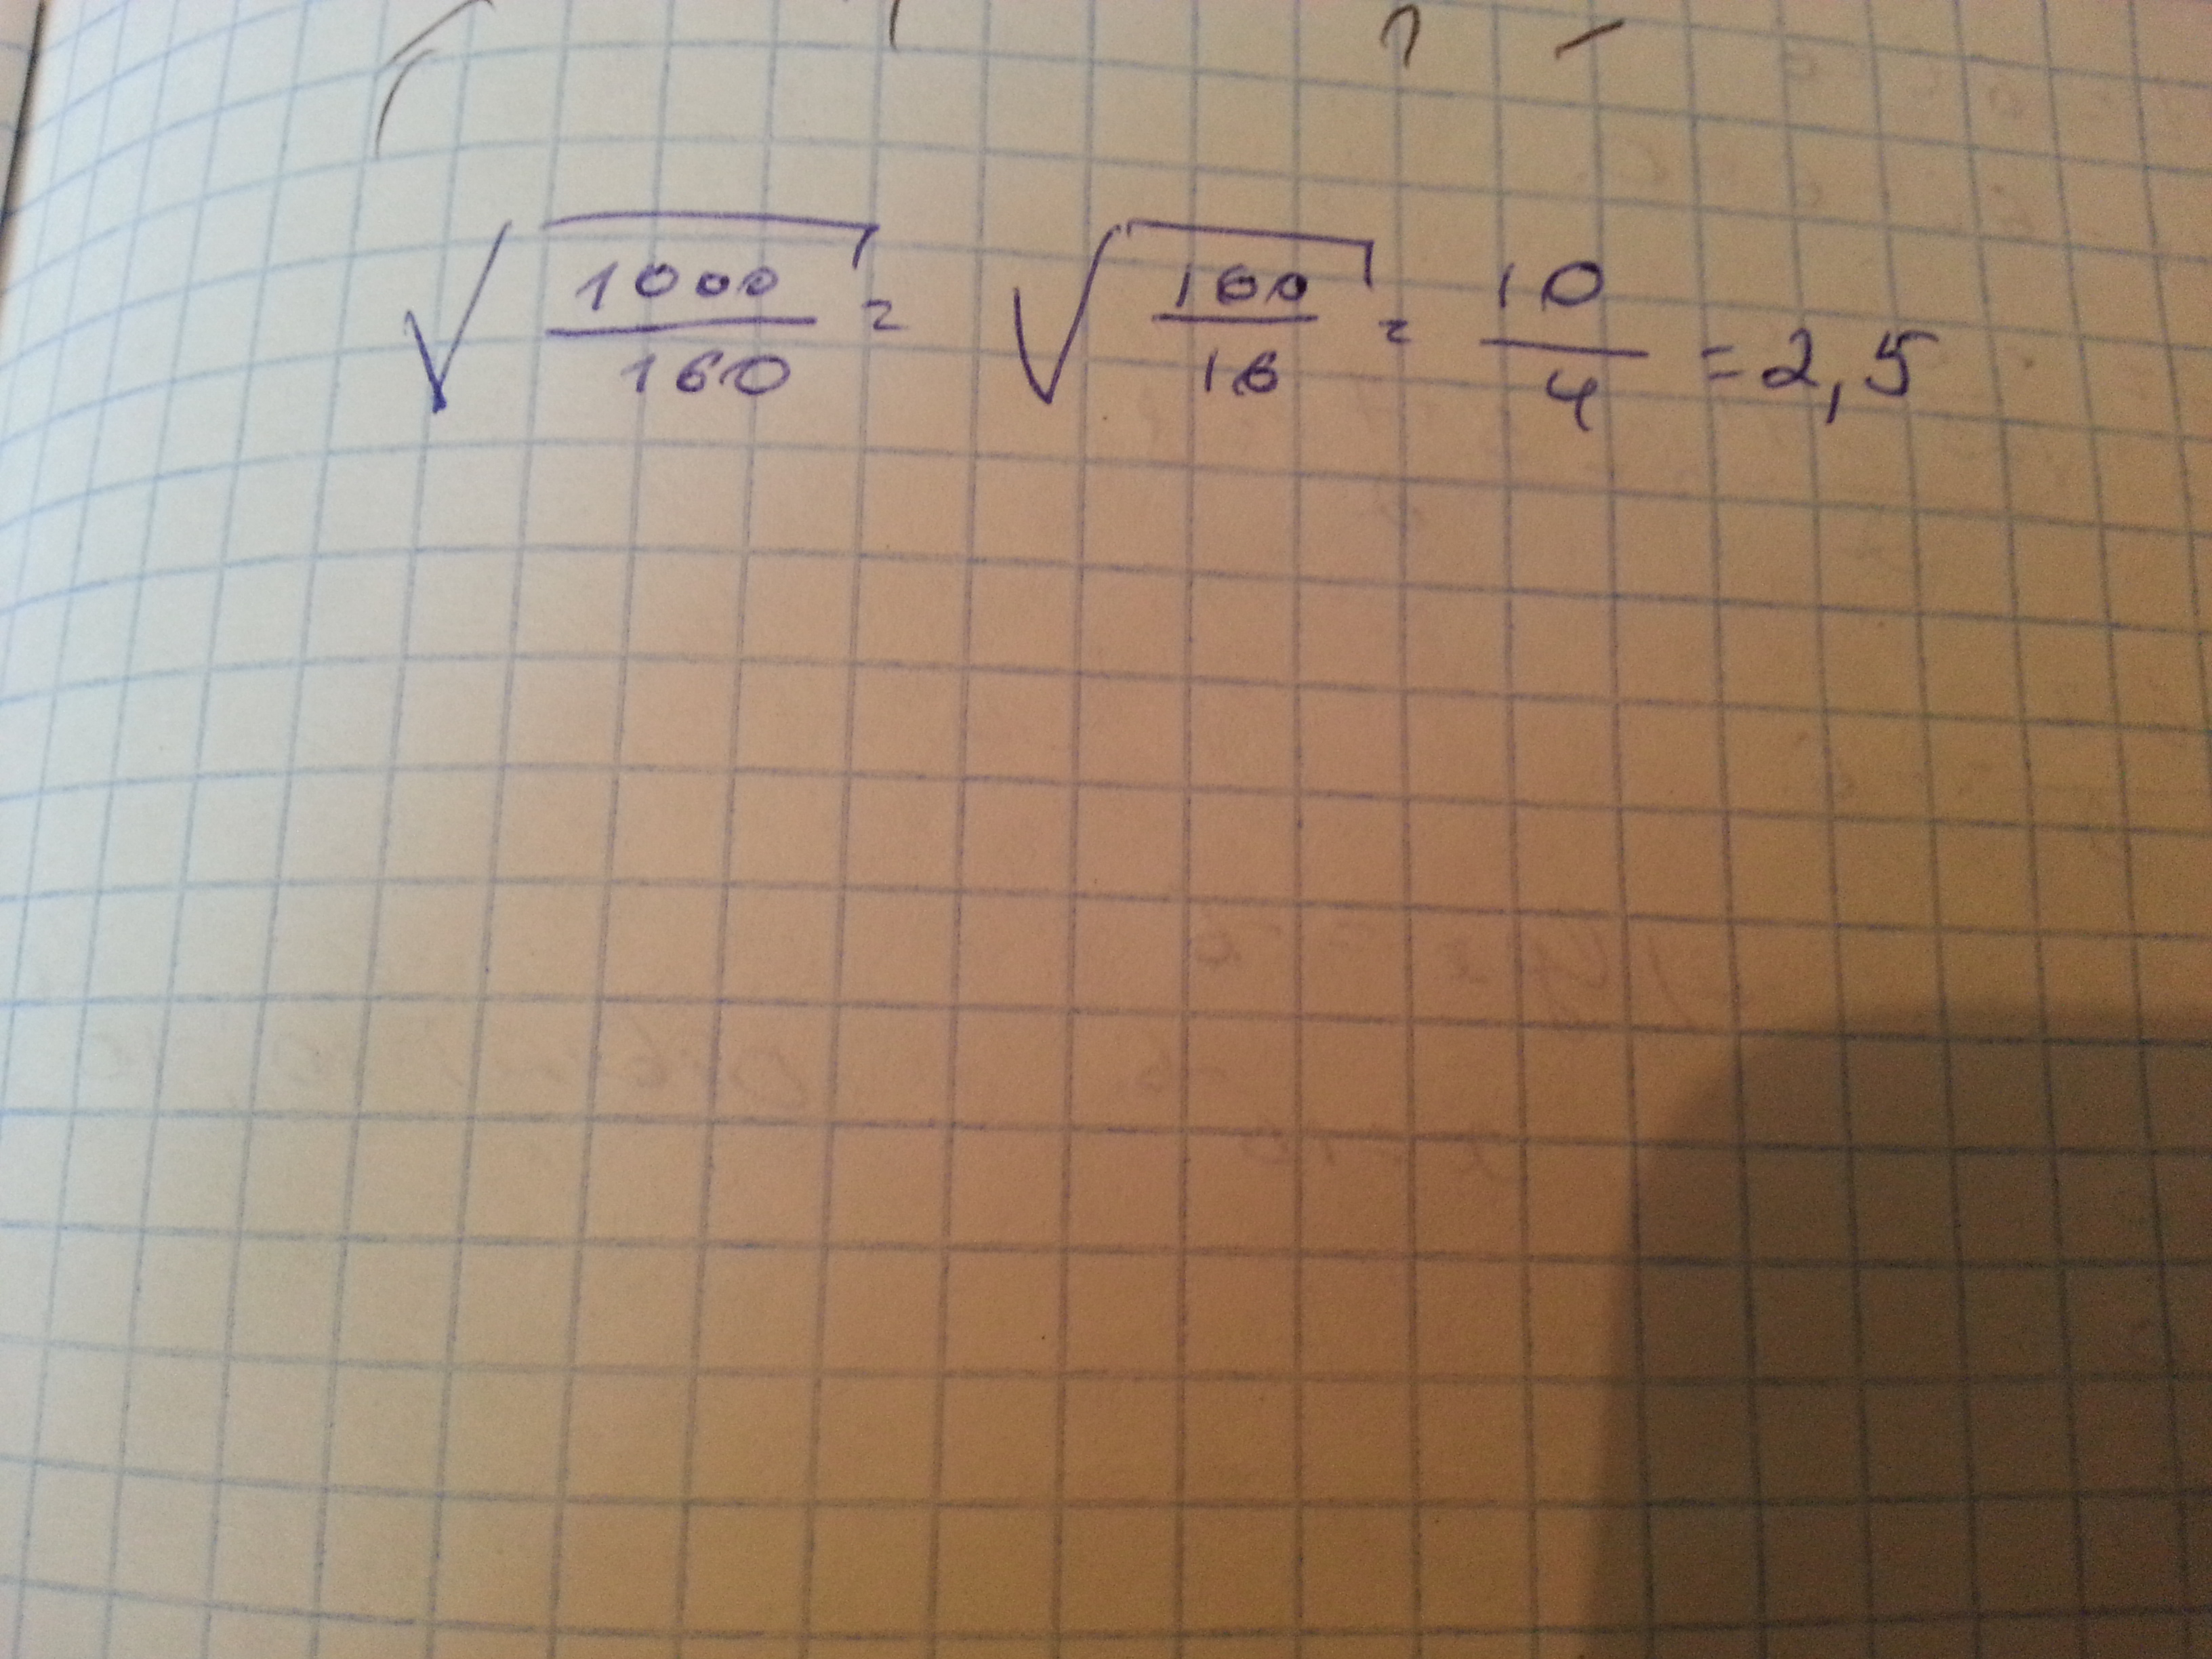 √(1000/160) = √(100/16) = 10/4 = 2,5